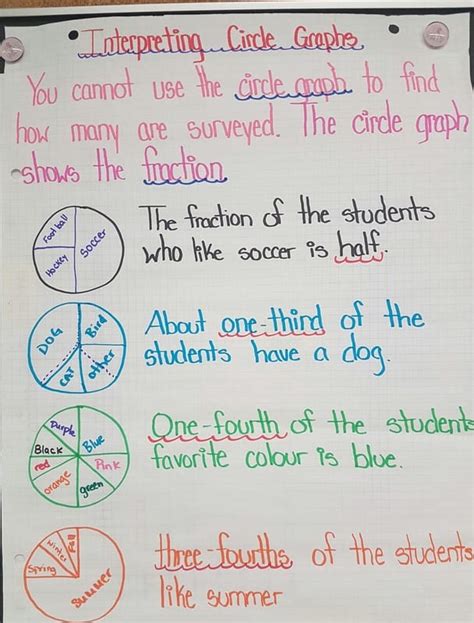 Interpreting Circle Graphs
You cannot use the circle graph to find
how many are surveyed. The circle graph
shows the fraction
Football
Soccer
Hockey
The fraction of the students
who like soccer is half.
DOG
Bird
CAT
other
About one-third of the
students have a dog.
Purple
Blue
Black
red
Pink
orange
green
One-fourth of the students
favorite colour is blue.
Fall
Winter
Spring
Summer
three-fourths of the students
like summer